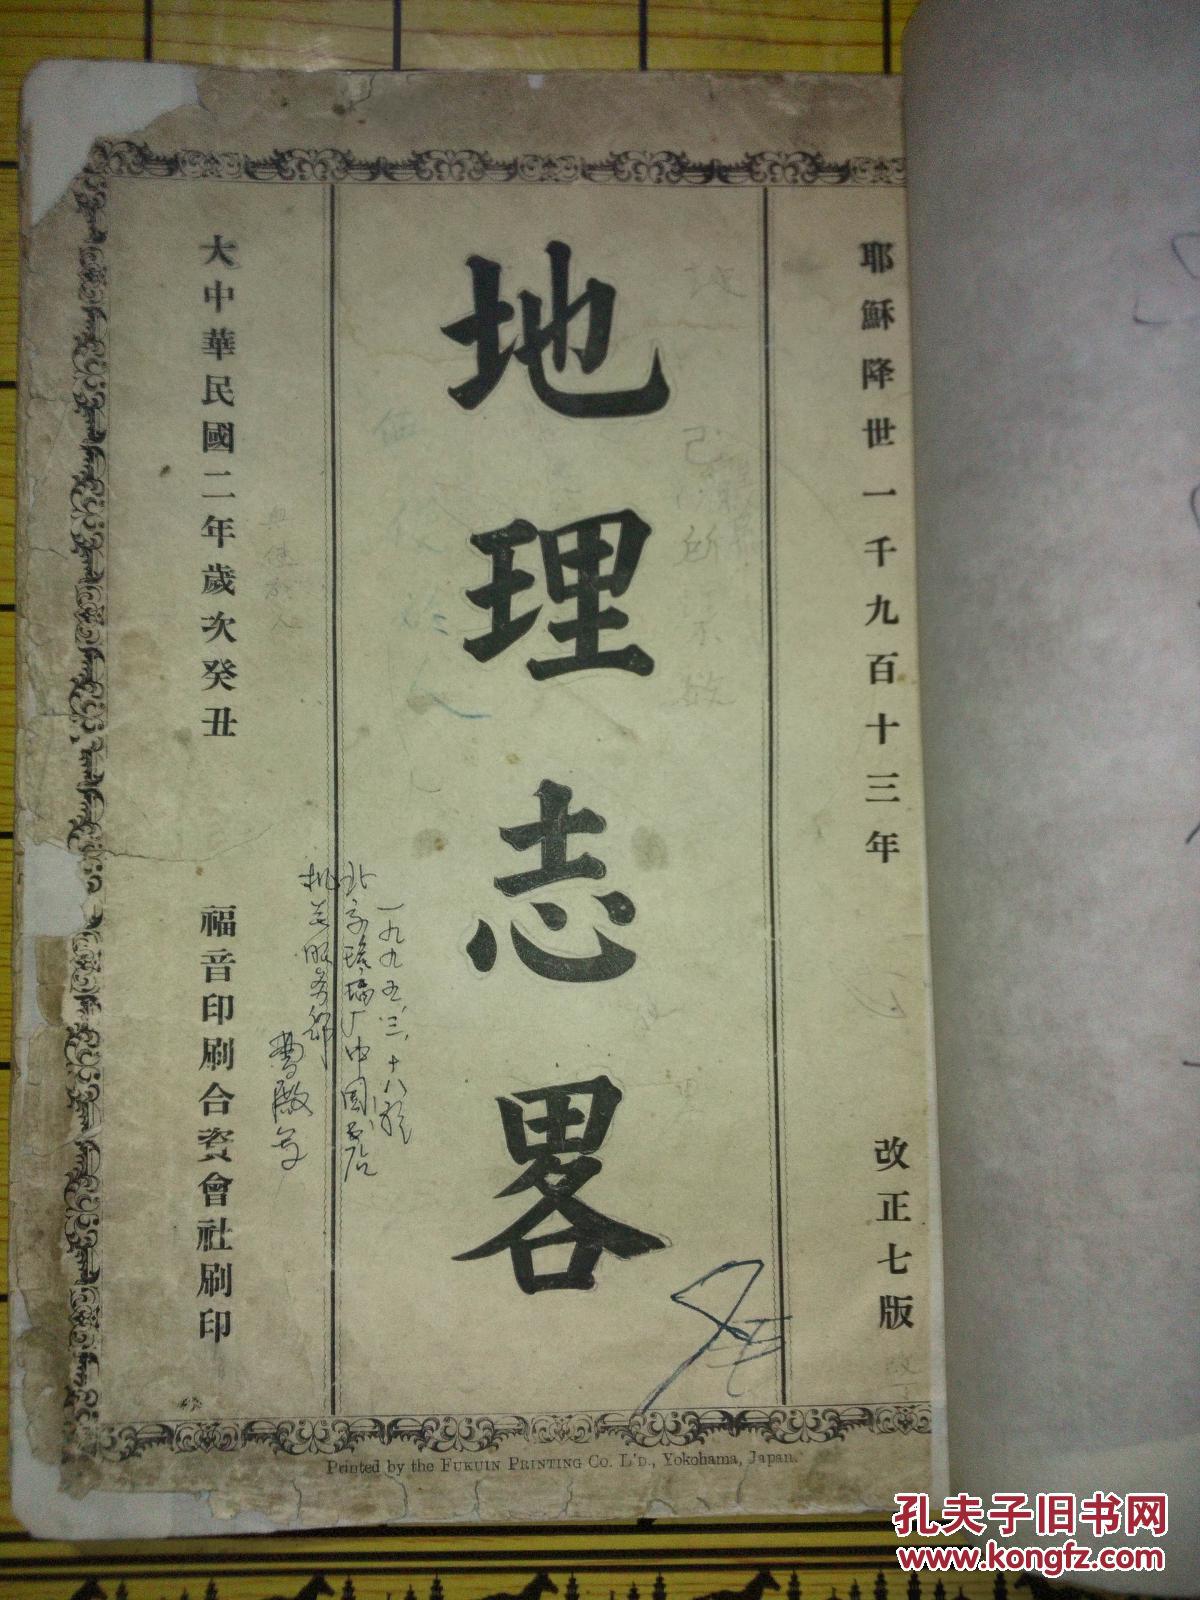 耶穌降世一千九百十三年
改正七版
地理志畧
大中華民國二年歲次癸丑
福音印刷合資會社刷印
一九九五、三、十八於
北京琉璃厂中国书店
机关服务部
Printed by the FUKUIN PRINTING CO. L'D., Yokohama, Japan.
孔夫子旧书网
www.kongfz.com